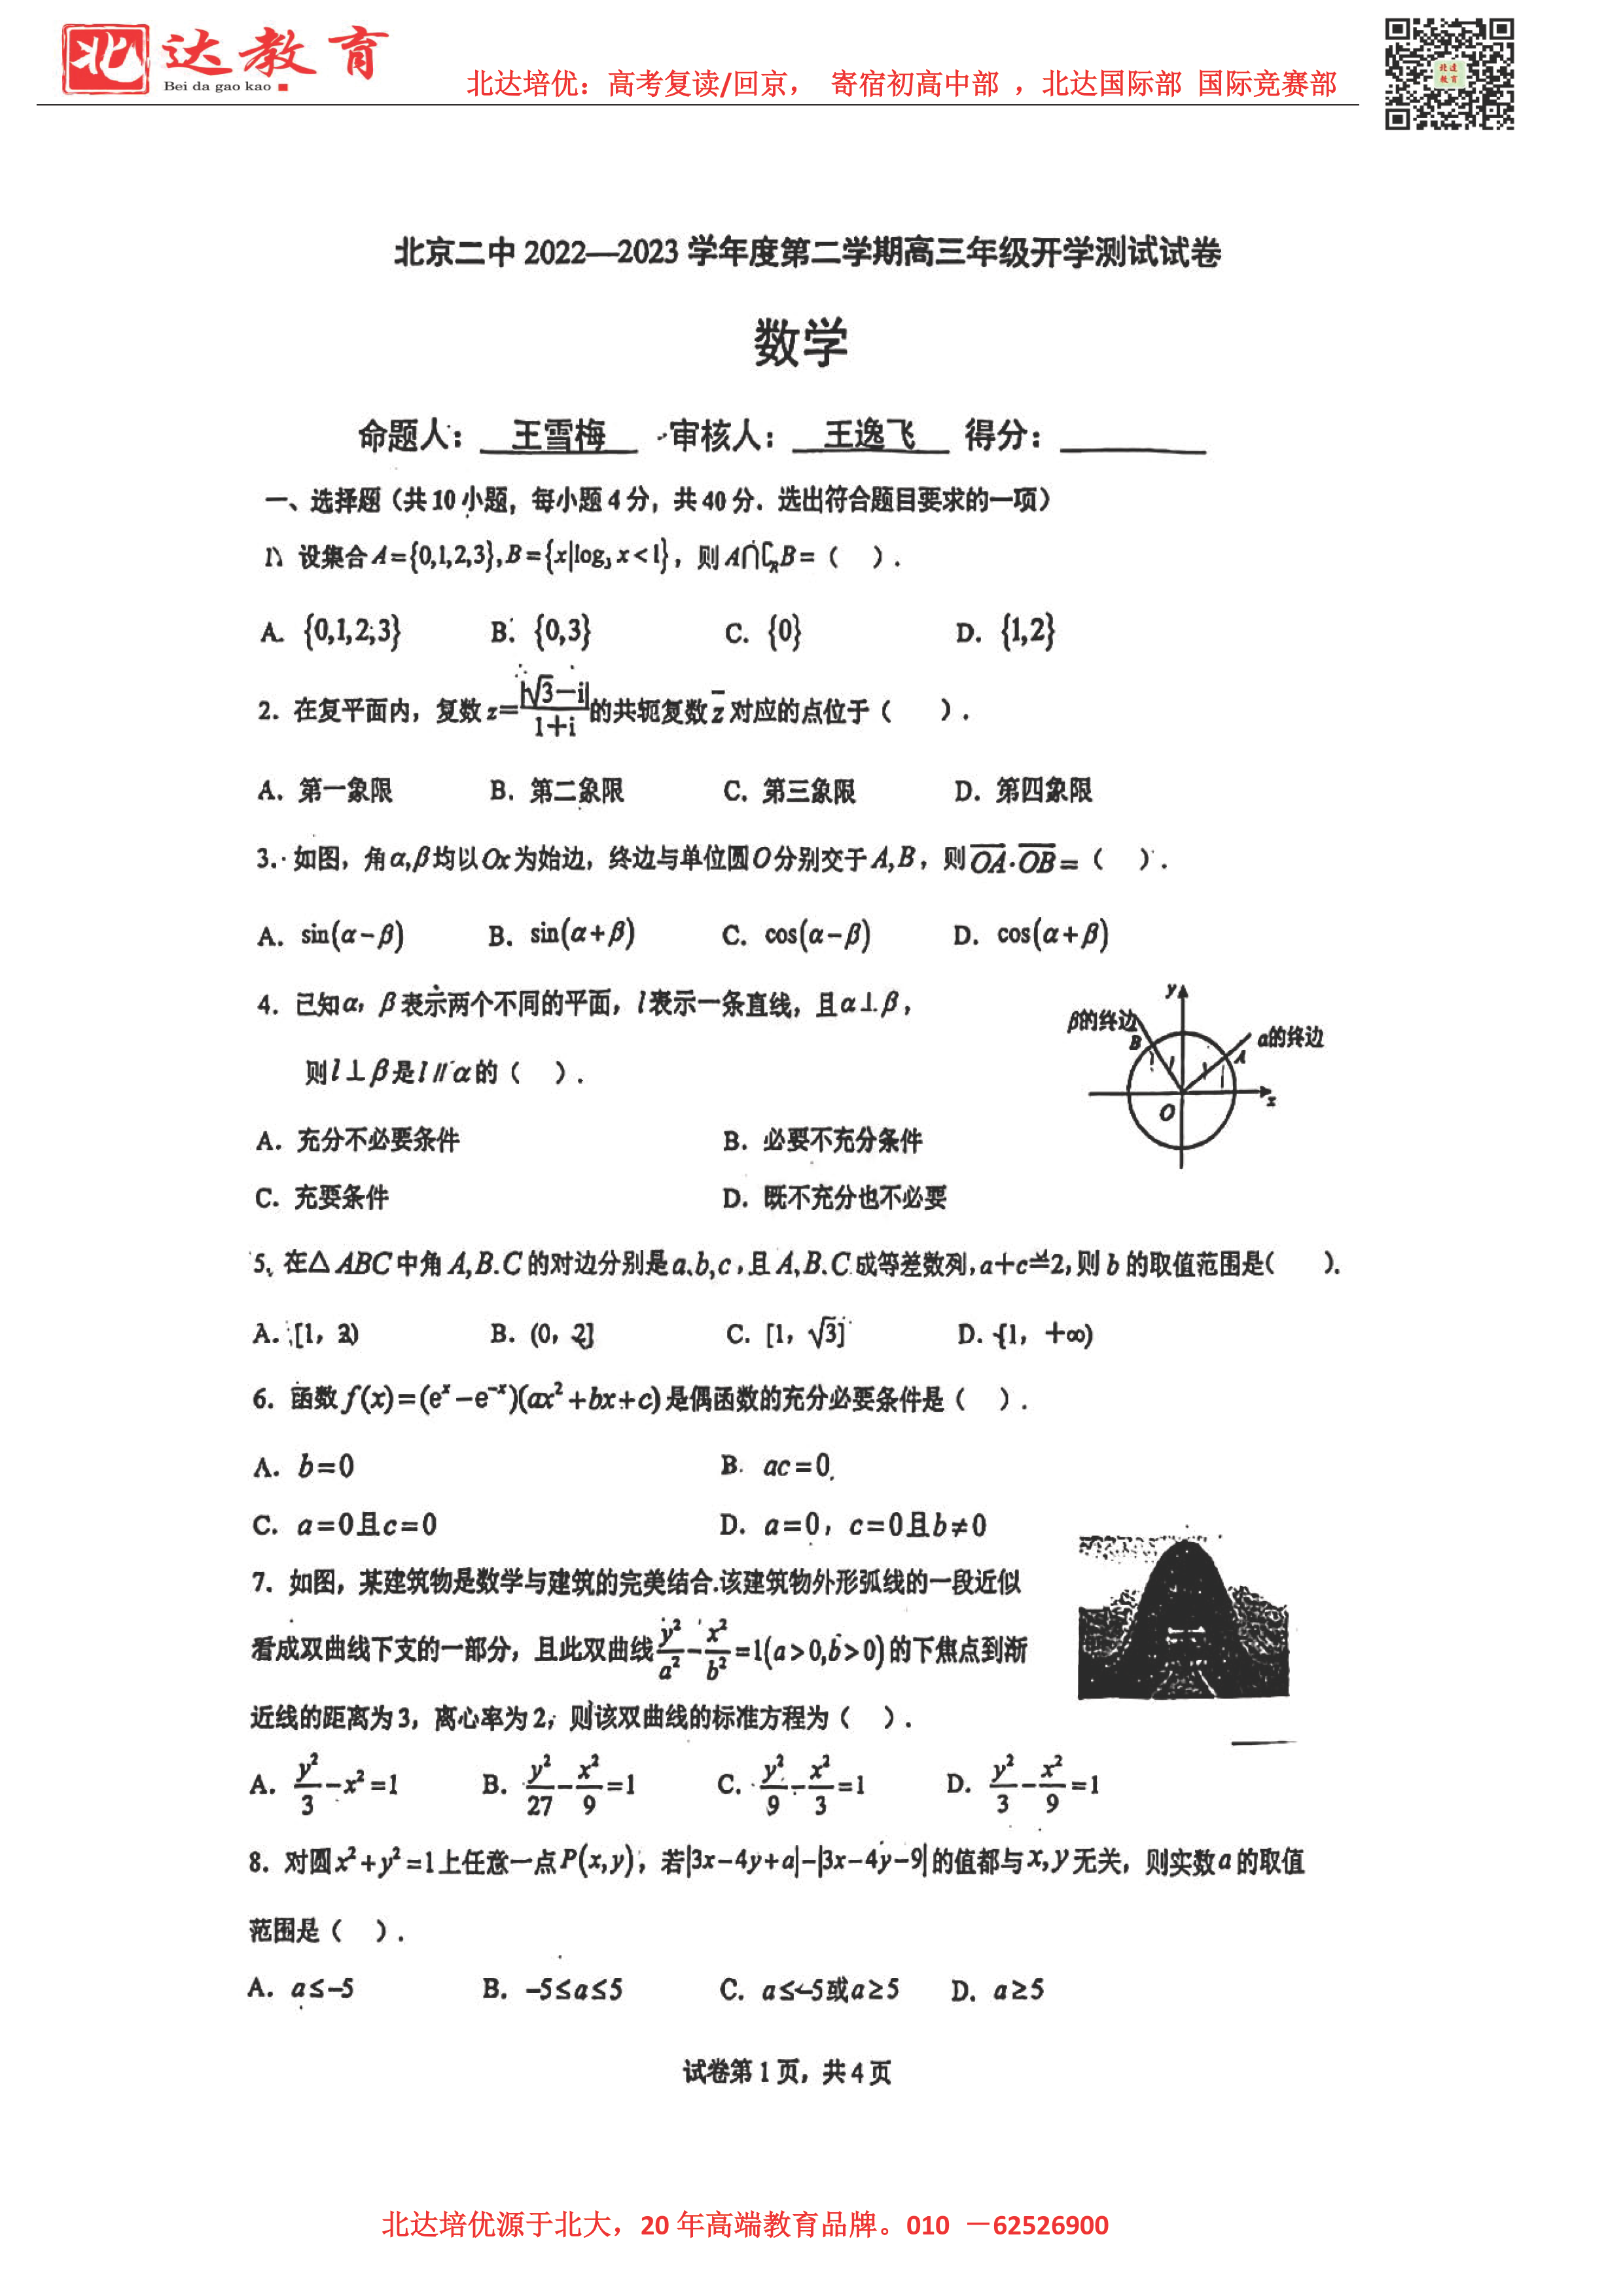 北达教育
Bei da gao kao
北达培优：高考复读/回京， 寄宿初高中部 ，北达国际部 国际竞赛部
北达教育
北京二中 2022—2023 学年度第二学期高三年级开学测试试卷
数学
命题人： 王雪梅 审核人： 王逸飞 得分：
一、选择题（共 10 小题，每小题 4 分，共 40 分．选出符合题目要求的一项）
1、设集合 A={0,1,2,3},B={x|log₃ x<1}，则 A∩∁_R B=（ ）.
A. {0,1,2,3} B. {0,3} C. {0} D. {1,2}
2. 在复平面内，复数 z=|√3－i|/(1＋i) 的共轭复数 z̄ 对应的点位于（ ）.
A. 第一象限 B. 第二象限 C. 第三象限 D. 第四象限
3. 如图，角 α,β 均以 Ox 为始边，终边与单位圆 O 分别交于 A,B，则 OA·OB=（ ）.
A. sin(α−β) B. sin(α+β) C. cos(α−β) D. cos(α+β)
4. 已知 α，β 表示两个不同的平面，l 表示一条直线，且 α⊥β，
则 l⊥β 是 l∥α 的（ ）.
A. 充分不必要条件 B. 必要不充分条件
C. 充要条件 D. 既不充分也不必要
y
β的终边
B
α的终边
A
O
x
5、在△ABC 中角 A,B.C 的对边分别是 a、b,c，且 A,B、C 成等差数列，a＋c＝2，则 b 的取值范围是( ).
A. [1，2) B. (0，2] C. [1，√3] D. [1，＋∞)
6. 函数 f(x)=(eˣ−e⁻ˣ)(ax²+bx+c) 是偶函数的充分必要条件是（ ）.
A. b=0 B. ac=0
C. a=0且c=0 D. a=0，c=0且b≠0
7. 如图，某建筑物是数学与建筑的完美结合.该建筑物外形弧线的一段近似
看成双曲线下支的一部分，且此双曲线 y²/a²−x²/b²=1(a>0,b>0) 的下焦点到渐
近线的距离为 3，离心率为 2，则该双曲线的标准方程为（ ）.
A. y²/3−x²=1 B. y²/27−x²/9=1 C. y²/9−x²/3=1 D. y²/3−x²/9=1
8. 对圆 x²+y²=1 上任意一点 P(x,y)，若 |3x−4y+a|−|3x−4y−9| 的值都与 x,y 无关，则实数 a 的取值
范围是（ ）.
A. a≤−5 B. −5≤a≤5 C. a≤−5或a≥5 D. a≥5
试卷第 1 页，共 4 页
北达培优源于北大，20 年高端教育品牌。010 －62526900